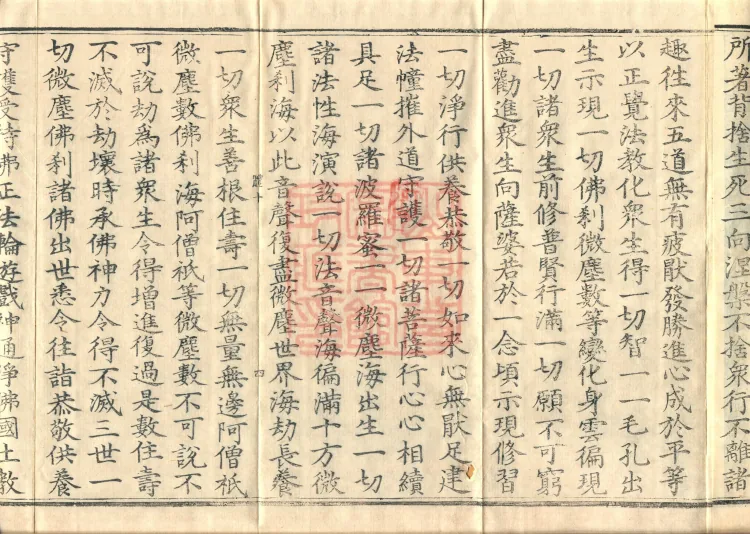 所著背捨生死三向涅槃不捨衆行不離諸
趣往來五道無有疲猒發勝進心成於平等
以正覺法教化衆生得一切智一一毛孔出
生示現一切佛刹微塵數等變化身雲徧現
一切諸衆生前修普賢行滿一切願不可窮
盡勸進衆生向薩婆若於一念頃示現修習
一切淨行供養恭敬一切如來心無猒足建
法幢摧外道守護一切諸菩薩行心心相續
具足一切諸波羅蜜一一微塵海出生一切
諸法性海演說一切法音聲海徧滿十方微
塵刹海以此音聲復盡微塵世界海劫長養
四
一切衆生善根住壽一切無量無邊阿僧祇
微塵數佛刹海阿僧祇等微塵數不可說不
可說劫爲諸衆生令得增進復過是數住壽
不滅於劫壞時承佛神力令得不滅三世一
切微塵佛刹諸佛出世悉令往詣恭敬供養
守護受持佛正法輪遊戲神通淨佛國土教